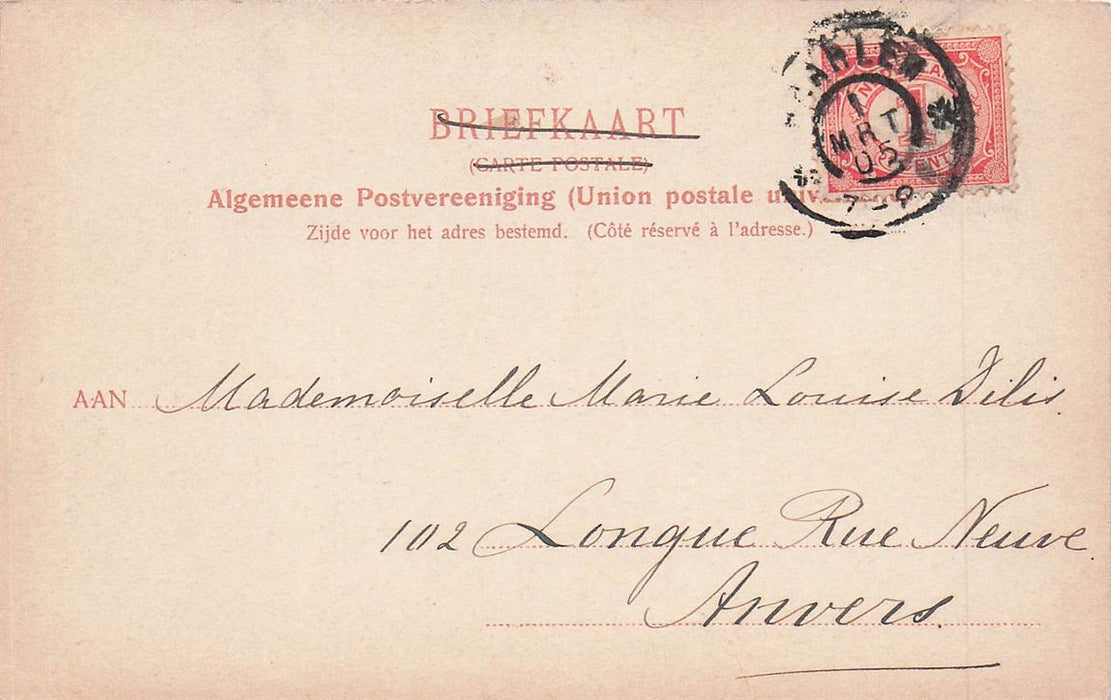 BRIEFKAART
(CARTE POSTALE)
Algemeene Postvereeniging (Union postale
Zijde voor het adres bestemd. (Côté réservé à l'adresse.)
1
MRT
05
AAN Mademoiselle Marie Louise Dilis.
102 Longue Rue Neuve
Anvers.